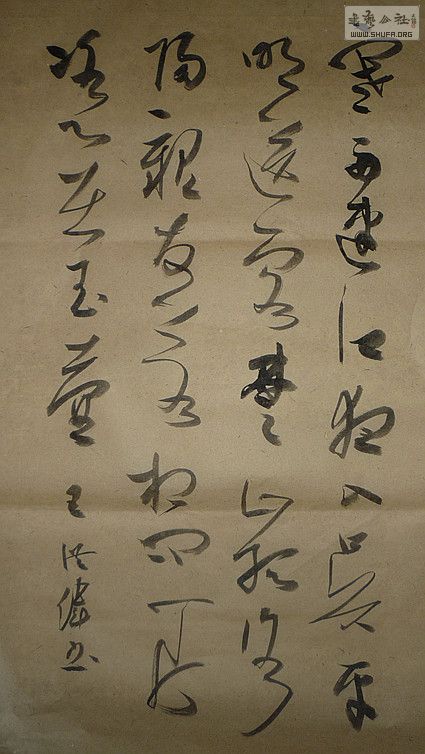 寒雨連江夜入吳平
明送客楚山孤洛
陽親友如相問一片
冰心在玉壺 王洪偉书
书艺公社
WWW.SHUFA.ORG